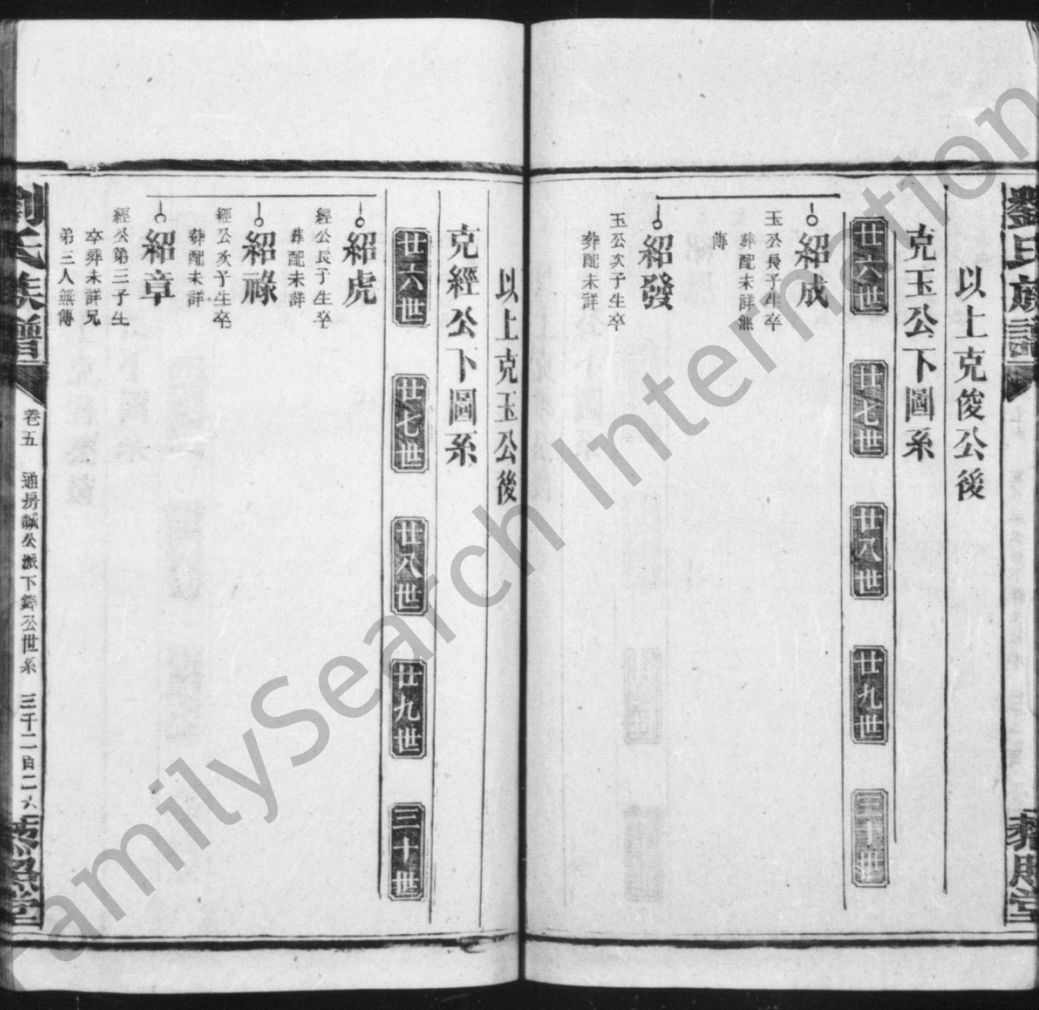 劉氏族譜
以上克俊公後
克玉公下圖系
廿六世
廿七世
廿八世
廿九世
三十世
紹成
玉公長子生卒
葬配未詳無
傳
紹發
玉公次子生卒
葬配未詳
以上克玉公後
克經公下圖系
廿六世
廿七世
廿八世
廿九世
三十世
紹虎
經公長子生卒
葬配未詳
紹祿
經公次子生卒
葬配未詳
紹章
經公第三子生
卒葬未詳兄
弟三人無傳
劉氏族譜
卷五
通房誠公派下鏻公世系
三千二百二六
FamilySearch International